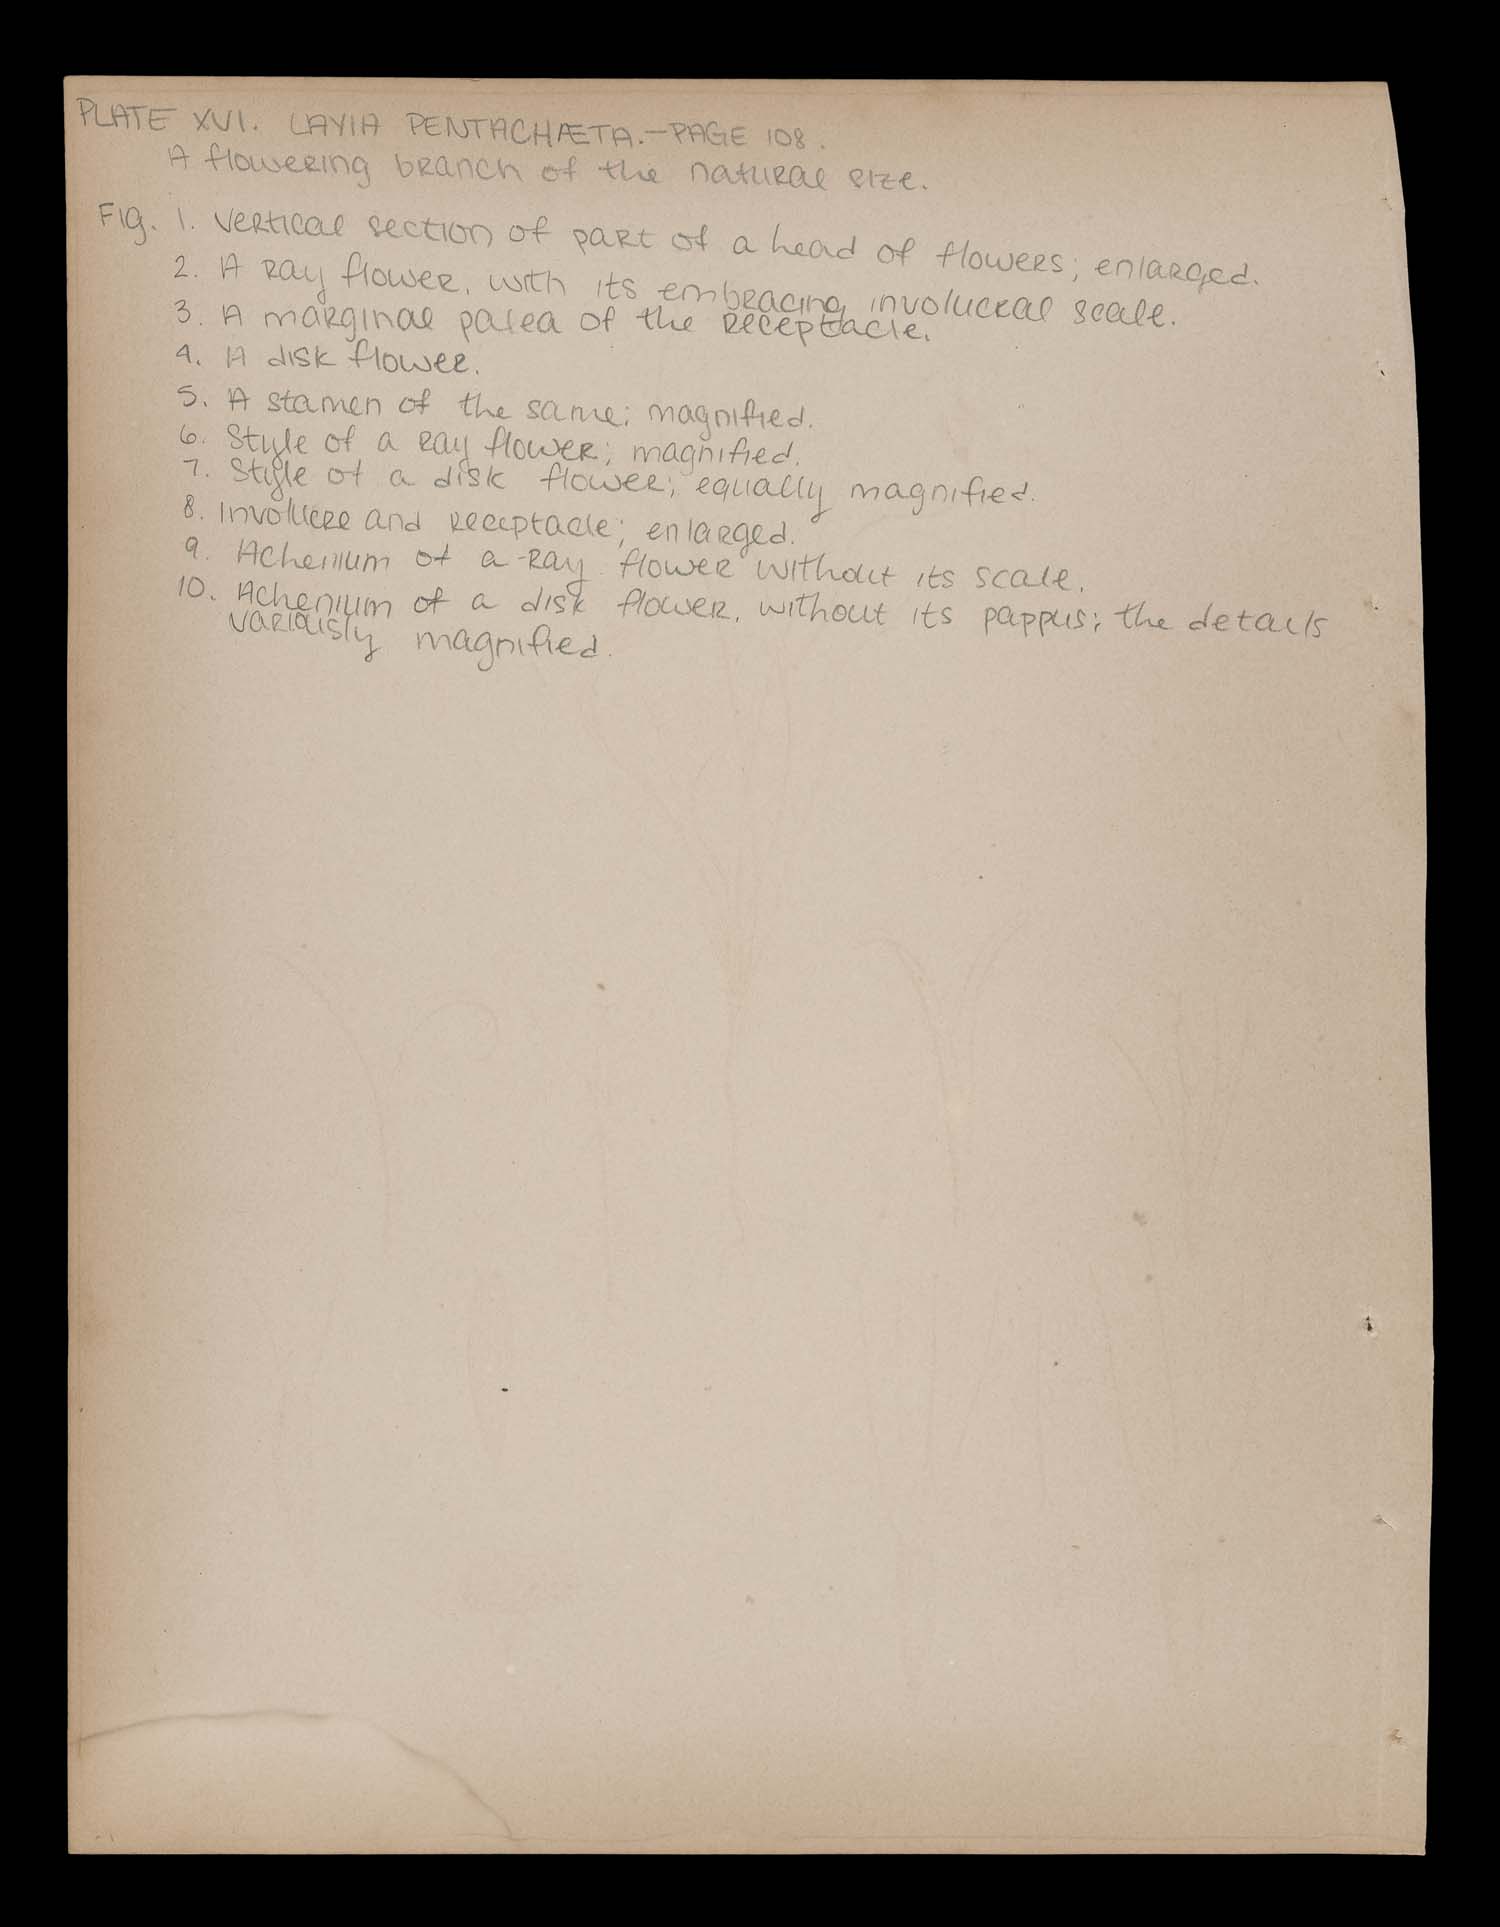 PLATE XVI. LAYIA PENTACHÆTA.—PAGE 108.
A flowering branch of the natural size.
Fig. 1. Vertical section of part of a head of flowers; enlarged.
2. A ray flower, with its embracing involucral scale.
3. A marginal palea of the receptacle.
4. A disk flower.
5. A stamen of the same; magnified.
6. Style of a ray flower; magnified.
7. Style of a disk flower; equally magnified.
8. Involucre and receptacle; enlarged.
9. Achenium of a ray flower without its scale.
10. Achenium of a disk flower, without its pappus; the details
variously magnified.